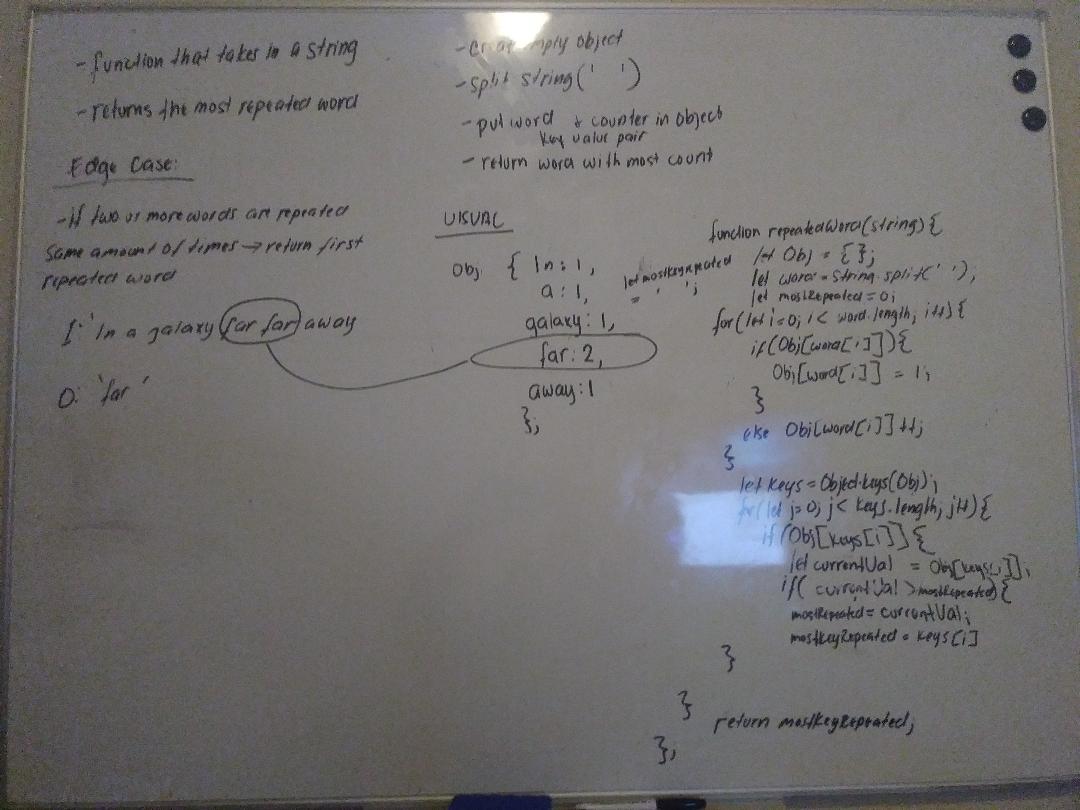 - function that takes in a string
- returns the most repeated word
Edge Case:
- If two or more words are repeated
same amount of times → return first
repeated word
I: 'In a galaxy far far away
O: 'far'
- empty object
- split string(' ')
- put word + counter in object
key value pair
- return word with most count
VISUAL
Obj: { In: 1,
a: 1,
galaxy: 1,
far: 2,
away: 1
};
let mostKeyRepeated
= ' ';
function repeatedWord(string) {
let Obj = {};
let word = string.split(' ');
let mostRepeated = 0;
for(let i=0; i < word.length; i++) {
if(Obj[word[i]]) {
Obj[word[i]] = 1;
}
else Obj[word[i]]++;
}
let keys = Object.keys(Obj);
for(let j=0; j < keys.length; j++) {
if (Obj[keys[i]]) {
let currentVal = Obj[keys[i]];
if( currentVal > mostRepeated) {
mostRepeated = currentVal;
mostKeyRepeated = keys[i]
}
}
return mostKeyRepeated;
};